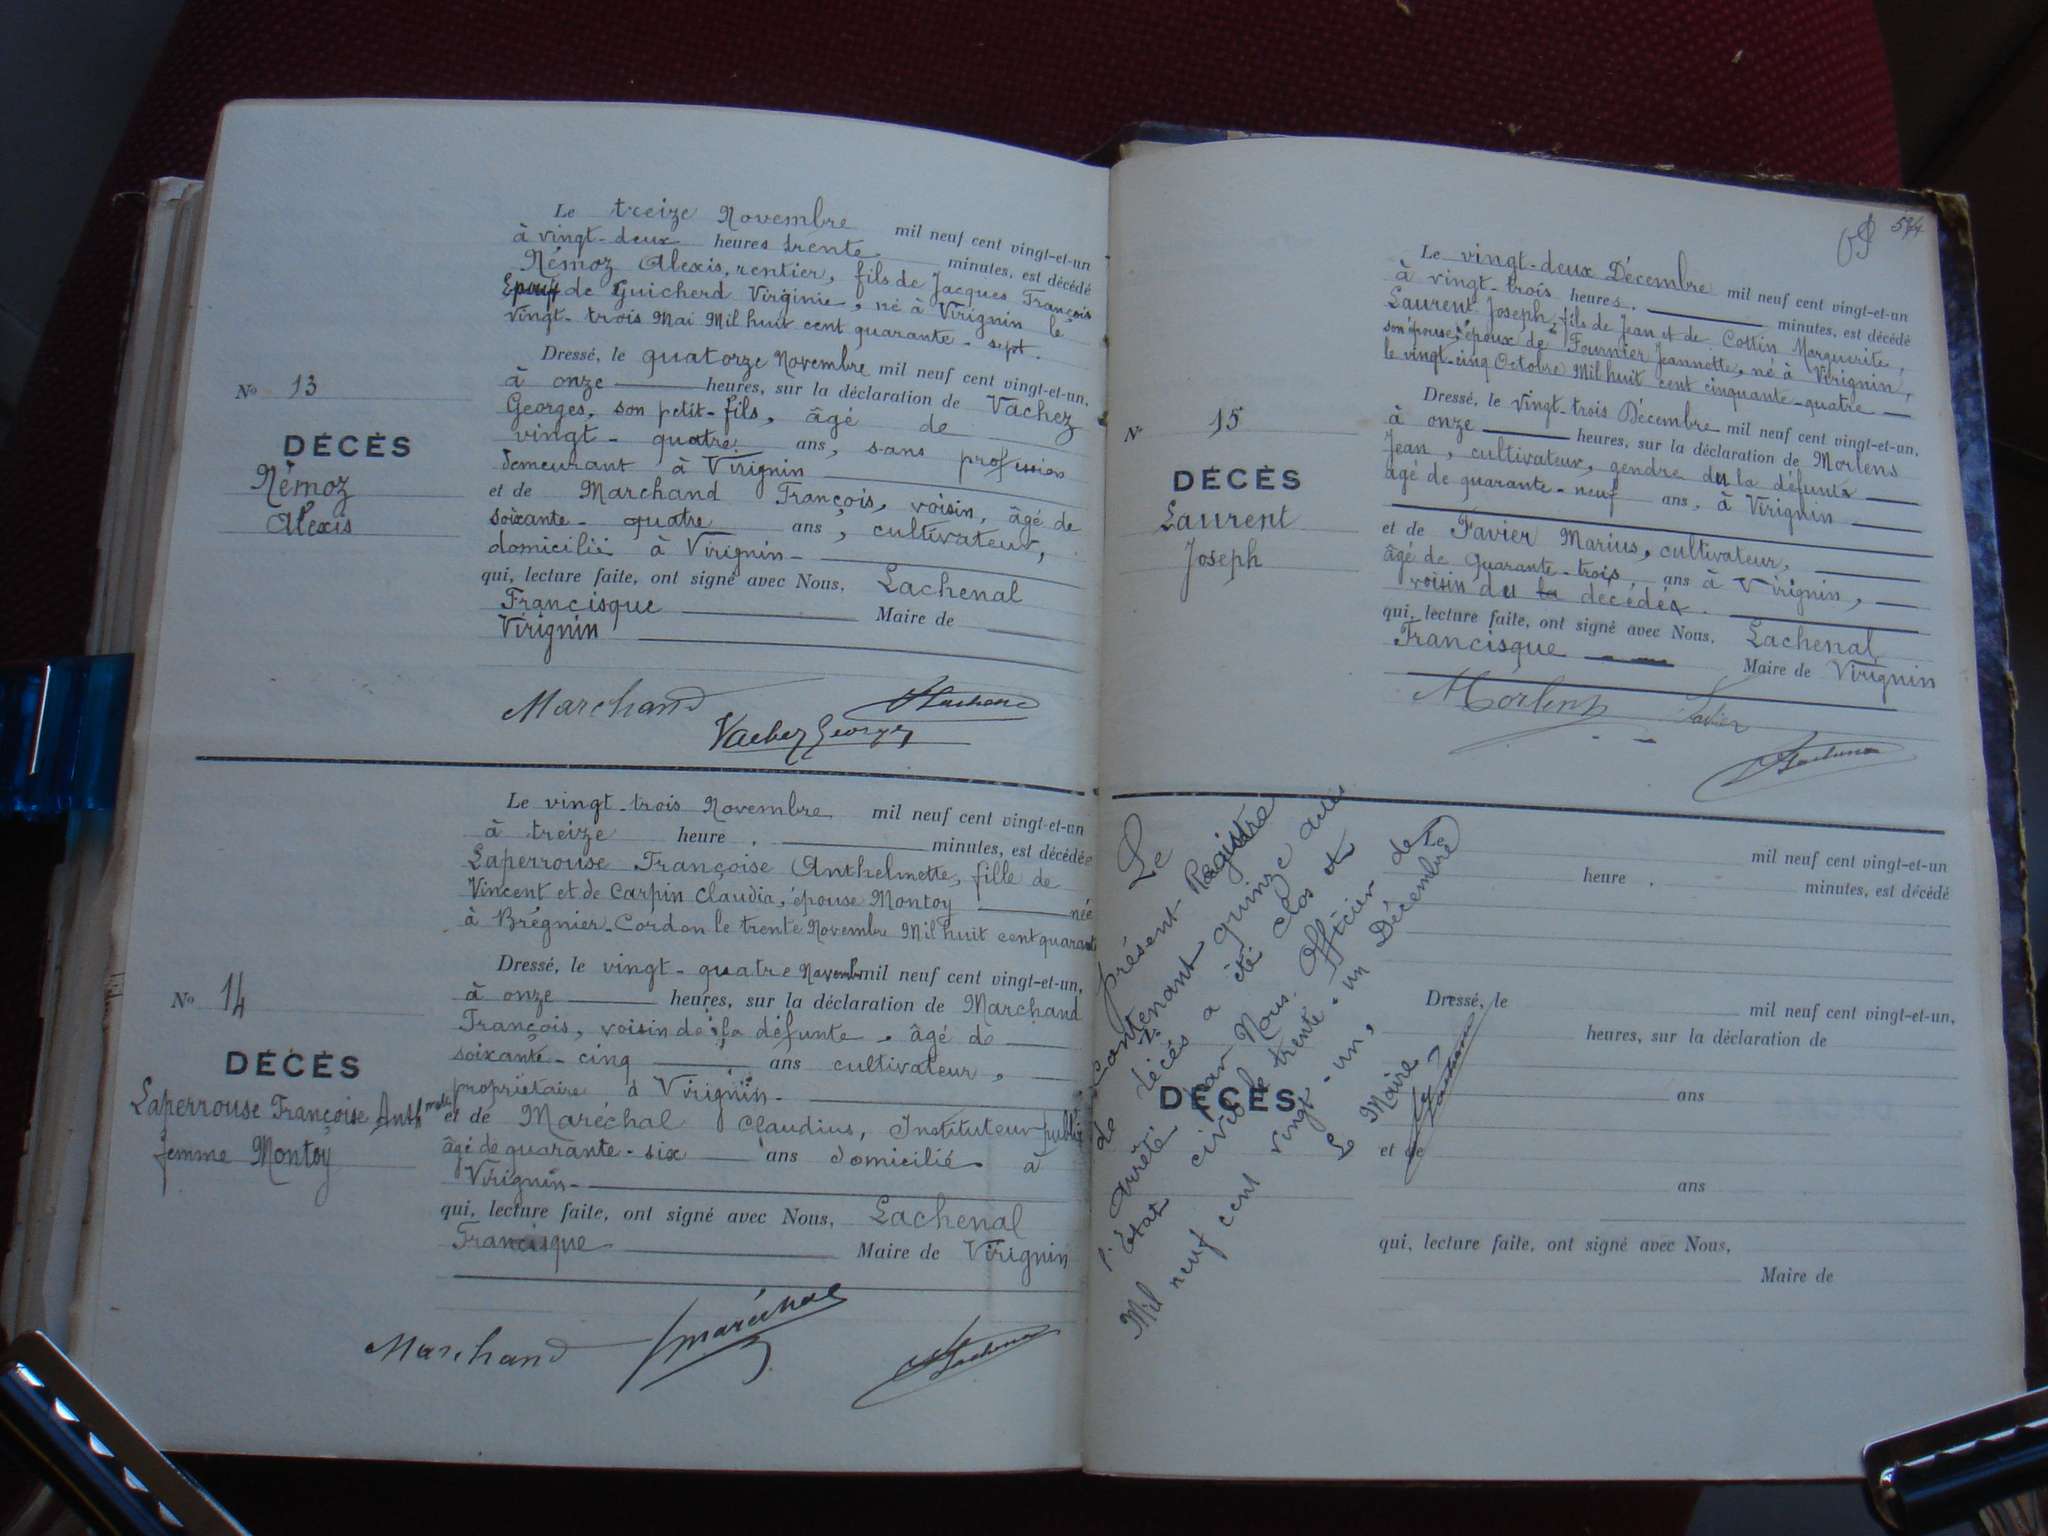 Le treize Novembre mil neuf cent vingt-et-un
à vingt-deux heures trente minutes, est décédé
Némoz Alexis, rentier, fils de Jacques François
Epoux de Guicherd Virginie, né à Virignin le
vingt-trois Mai Mil huit cent quarante-sept.
Dressé, le quatorze Novembre mil neuf cent vingt-et-un,
No 13
à onze heures, sur la déclaration de Vachez
Georges, son petit-fils, âgé de
DÉCÈS
vingt-quatre ans, sans profession
Némoz
demeurant à Virignin
et de Marchand François, voisin, âgé de
Alexis
soixante-quatre ans, cultivateur,
domicilié à Virignin-
qui, lecture faite, ont signé avec Nous, Lachenal
Francisque Maire de
Virignin
Marchand
Vachez Georges
Lachenal
Le vingt-trois Novembre mil neuf cent vingt-et-un
à treize heure, minutes, est décédée
Laperrouse Françoise Anthelmette, fille de
Vincent et de Carpin Claudia, épouse Montoy née
à Brégnier-Cordon le trente Novembre Mil huit cent quarante
Dressé, le vingt-quatre Novembre mil neuf cent vingt-et-un,
No 14
à onze heures, sur la déclaration de Marchand
François, voisin de la défunte, âgé de
DÉCÈS
soixante-cinq ans cultivateur,
propriétaire à Virignin-
Laperrouse Françoise Anthmette
et de Maréchal Claudius, Instituteur public
femme Montoy
âgé de quarante-six ans domicilié à
Virignin-
qui, lecture faite, ont signé avec Nous, Lachenal
Francisque Maire de Virignin
Marchand
Maréchal
Lachenal
574
Le vingt-deux Décembre mil neuf cent vingt-et-un
à vingt-trois heures, minutes, est décédé
Laurent Joseph, fils de Jean et de Cottin Marguerite,
son épouse, époux de Fournier Jeannette, né à Virignin,
le vingt-cinq Octobre Mil huit cent cinquante-quatre
Dressé, le vingt-trois Décembre mil neuf cent vingt-et-un,
No 15
à onze heures, sur la déclaration de Morlens
Jean, cultivateur, gendre du la défunt
DÉCÈS
âgé de quarante-neuf ans, à Virignin
Laurent
et de Favier Marius, cultivateur,
Joseph
âgé de Quarante-trois, ans à Virignin,
voisin du la décédé.
qui, lecture faite, ont signé avec Nous, Lachenal
Francisque Maire de Virignin
Morlens
Favier
Lachenal
Le présent Registre
contenant quinze actes
de décès a été clos et
arrêté par Nous Officier de
l'Etat civil le trente-un Décembre
Mil neuf cent vingt-un,
Le Maire
Lachenal
Le mil neuf cent vingt-et-un
heure, minutes, est décédé
Dressé, le mil neuf cent vingt-et-un,
No
heures, sur la déclaration de
DÉCÈS
ans
et de
ans
qui, lecture faite, ont signé avec Nous,
Maire de